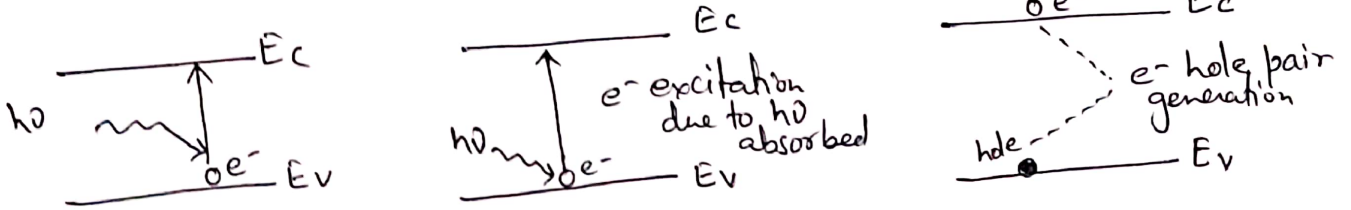 Ec
hν
e-
Ev
Ec
e- excitation
due to hν
absorbed
hν
e-
Ev
e Ec
e- hole pair
generation
hole
Ev